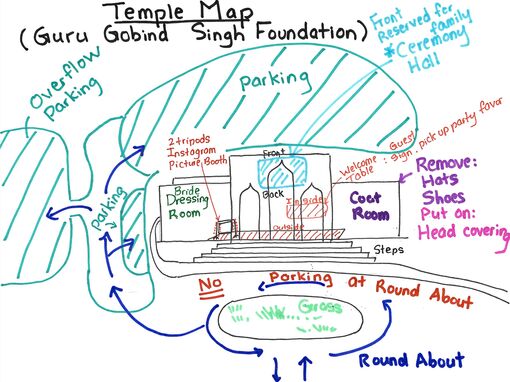 Temple Map
(Guru Gobind Singh Foundation)
Front
Reserved for
family
*Ceremony
Hall
Overflow
Parking
Parking
2 tripods
Instagram
Picture Booth
Front
Back
Welcome
Table
: Guest
Sign, pick up party favor
Bride
Dressing
Room
Inside
Outside
Coat
Room
Remove:
Hats
Shoes
Put on:
Head covering
Parking
Steps
No Parking at Round About
Grass
Round About